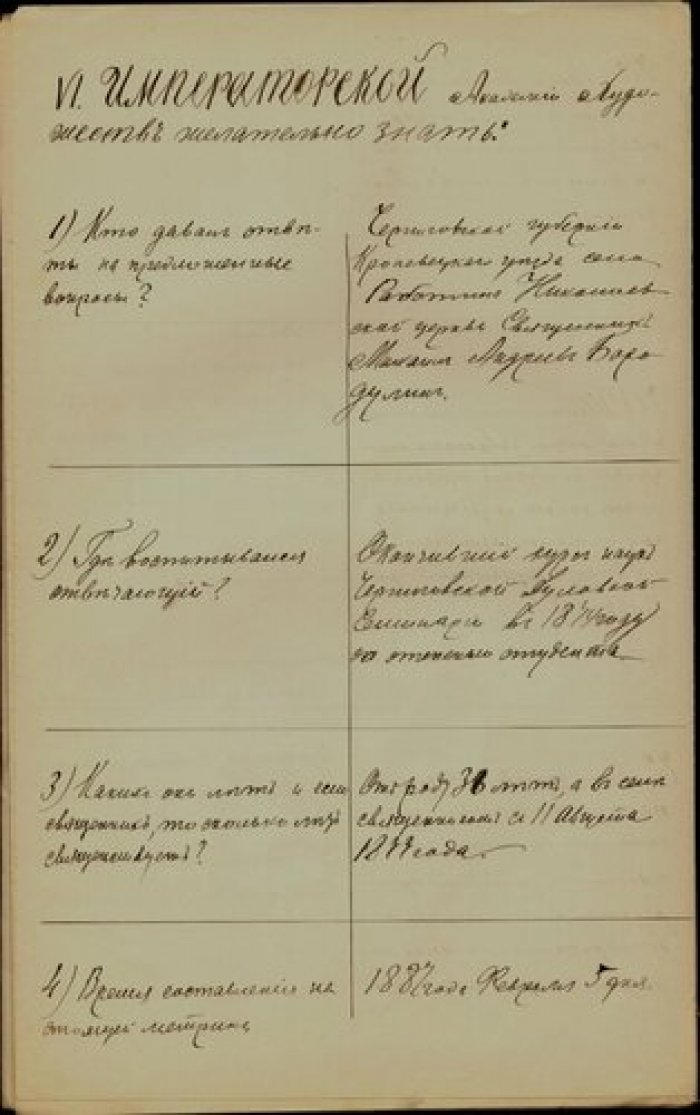 VI. Императорской Академіи Худо-
жествъ желательно знать:
1) Кто давалъ отвѣ-
ты на предложенные
вопросы?
Черниговской губерніи
Кролевецкаго уѣзда села
Николаев-
ской церкви Священникъ
Михаилъ Андреевъ Боро-
дулинъ.
2) Гдѣ воспитывался
отвѣчающій?
Окончившій курсъ наукъ
Черниговской Духовной
Семинаріи въ году
со степенью студента
3) Какихъ онъ лѣтъ и если
священникъ, то сколько лѣтъ
священствуетъ?
Отъ роду лѣтъ, а въ селѣ
священникомъ съ 11 Августа
года.
4) Время составленія на
стоящей метрики
года Февраля 5 дня.